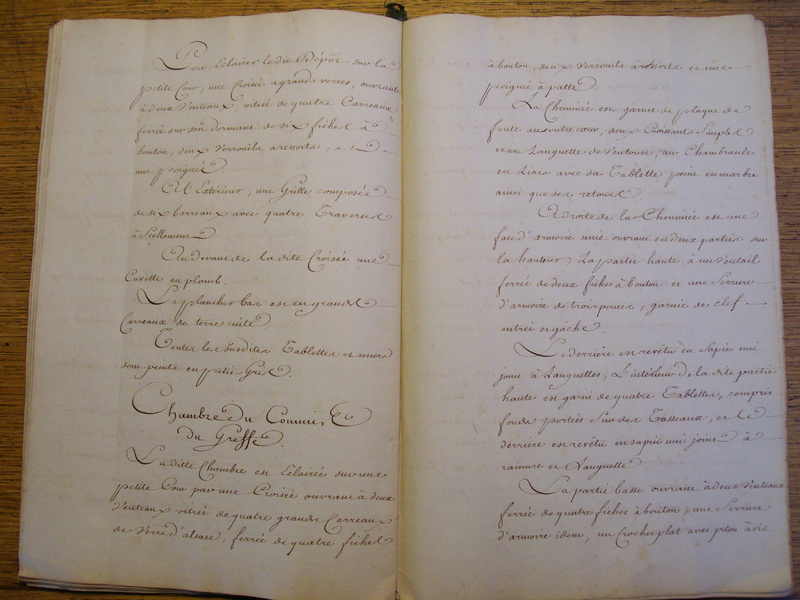 Pour Eclairer ledit Dépôt sur la
petite Cour, une Croisée a grands verres, ouvrante
à deux Venteaux, vitrée de quatre Carreaux,
ferrée sur son dormant de six fiches à
bouton, deux Verrouils à ressorts, et
une poignée
A l'Extérieur, une Grille composée
de six barreaux avec quatre Traverses
à Scellement
Au devant de la dite Croisée une
Cuvette en plomb.
Le plancher bas est en grands
Carreaux de terre cuite
Toutes les susdites Tablettes et murs
sont peints en petit Gris.
Chambre du Commis
du Greffe
La ditte Chambre est Eclairée sur une
petite Cour par une Croisée ouvrant à deux
Venteaux vitrée de quatre grands Carreaux
de Verre d'alsace, ferrée de quatre fiches
à bouton, deux Verrouils à ressorts et une
poignée à patte.
La Cheminée est garnie de plaque de
fonte au contre cœur, deux Croissants Simples
et une Languette de Ventouse, un Chambranle
en Liais avec sa Tablette peint en marbre
ainsi que ses retours
A droite de la Cheminée est une
face d'armoire uni ouvrant en deux parties sur
la hauteur; La partie haute à un Ventail
ferrée de deux fiches à bouton et une Serrure
d'armoire de trois pouces, garnie de clef
entrée et gâche.
Le derrière est revêtu en Sapin uni
joint à Languettes; L'intérieur de la dite partie
haute est garni de quatre Tablettes, compris
fond portés Sur des Tasseaux, et le
derrière est revêtu en sapin uni joint à
rainure et Languette
La partie basse ouvrant à deux Venteaux
ferrée de quatre fiches à bouton, une Serrure
d'armoire idem, un Crochet plat avec piton à vis.